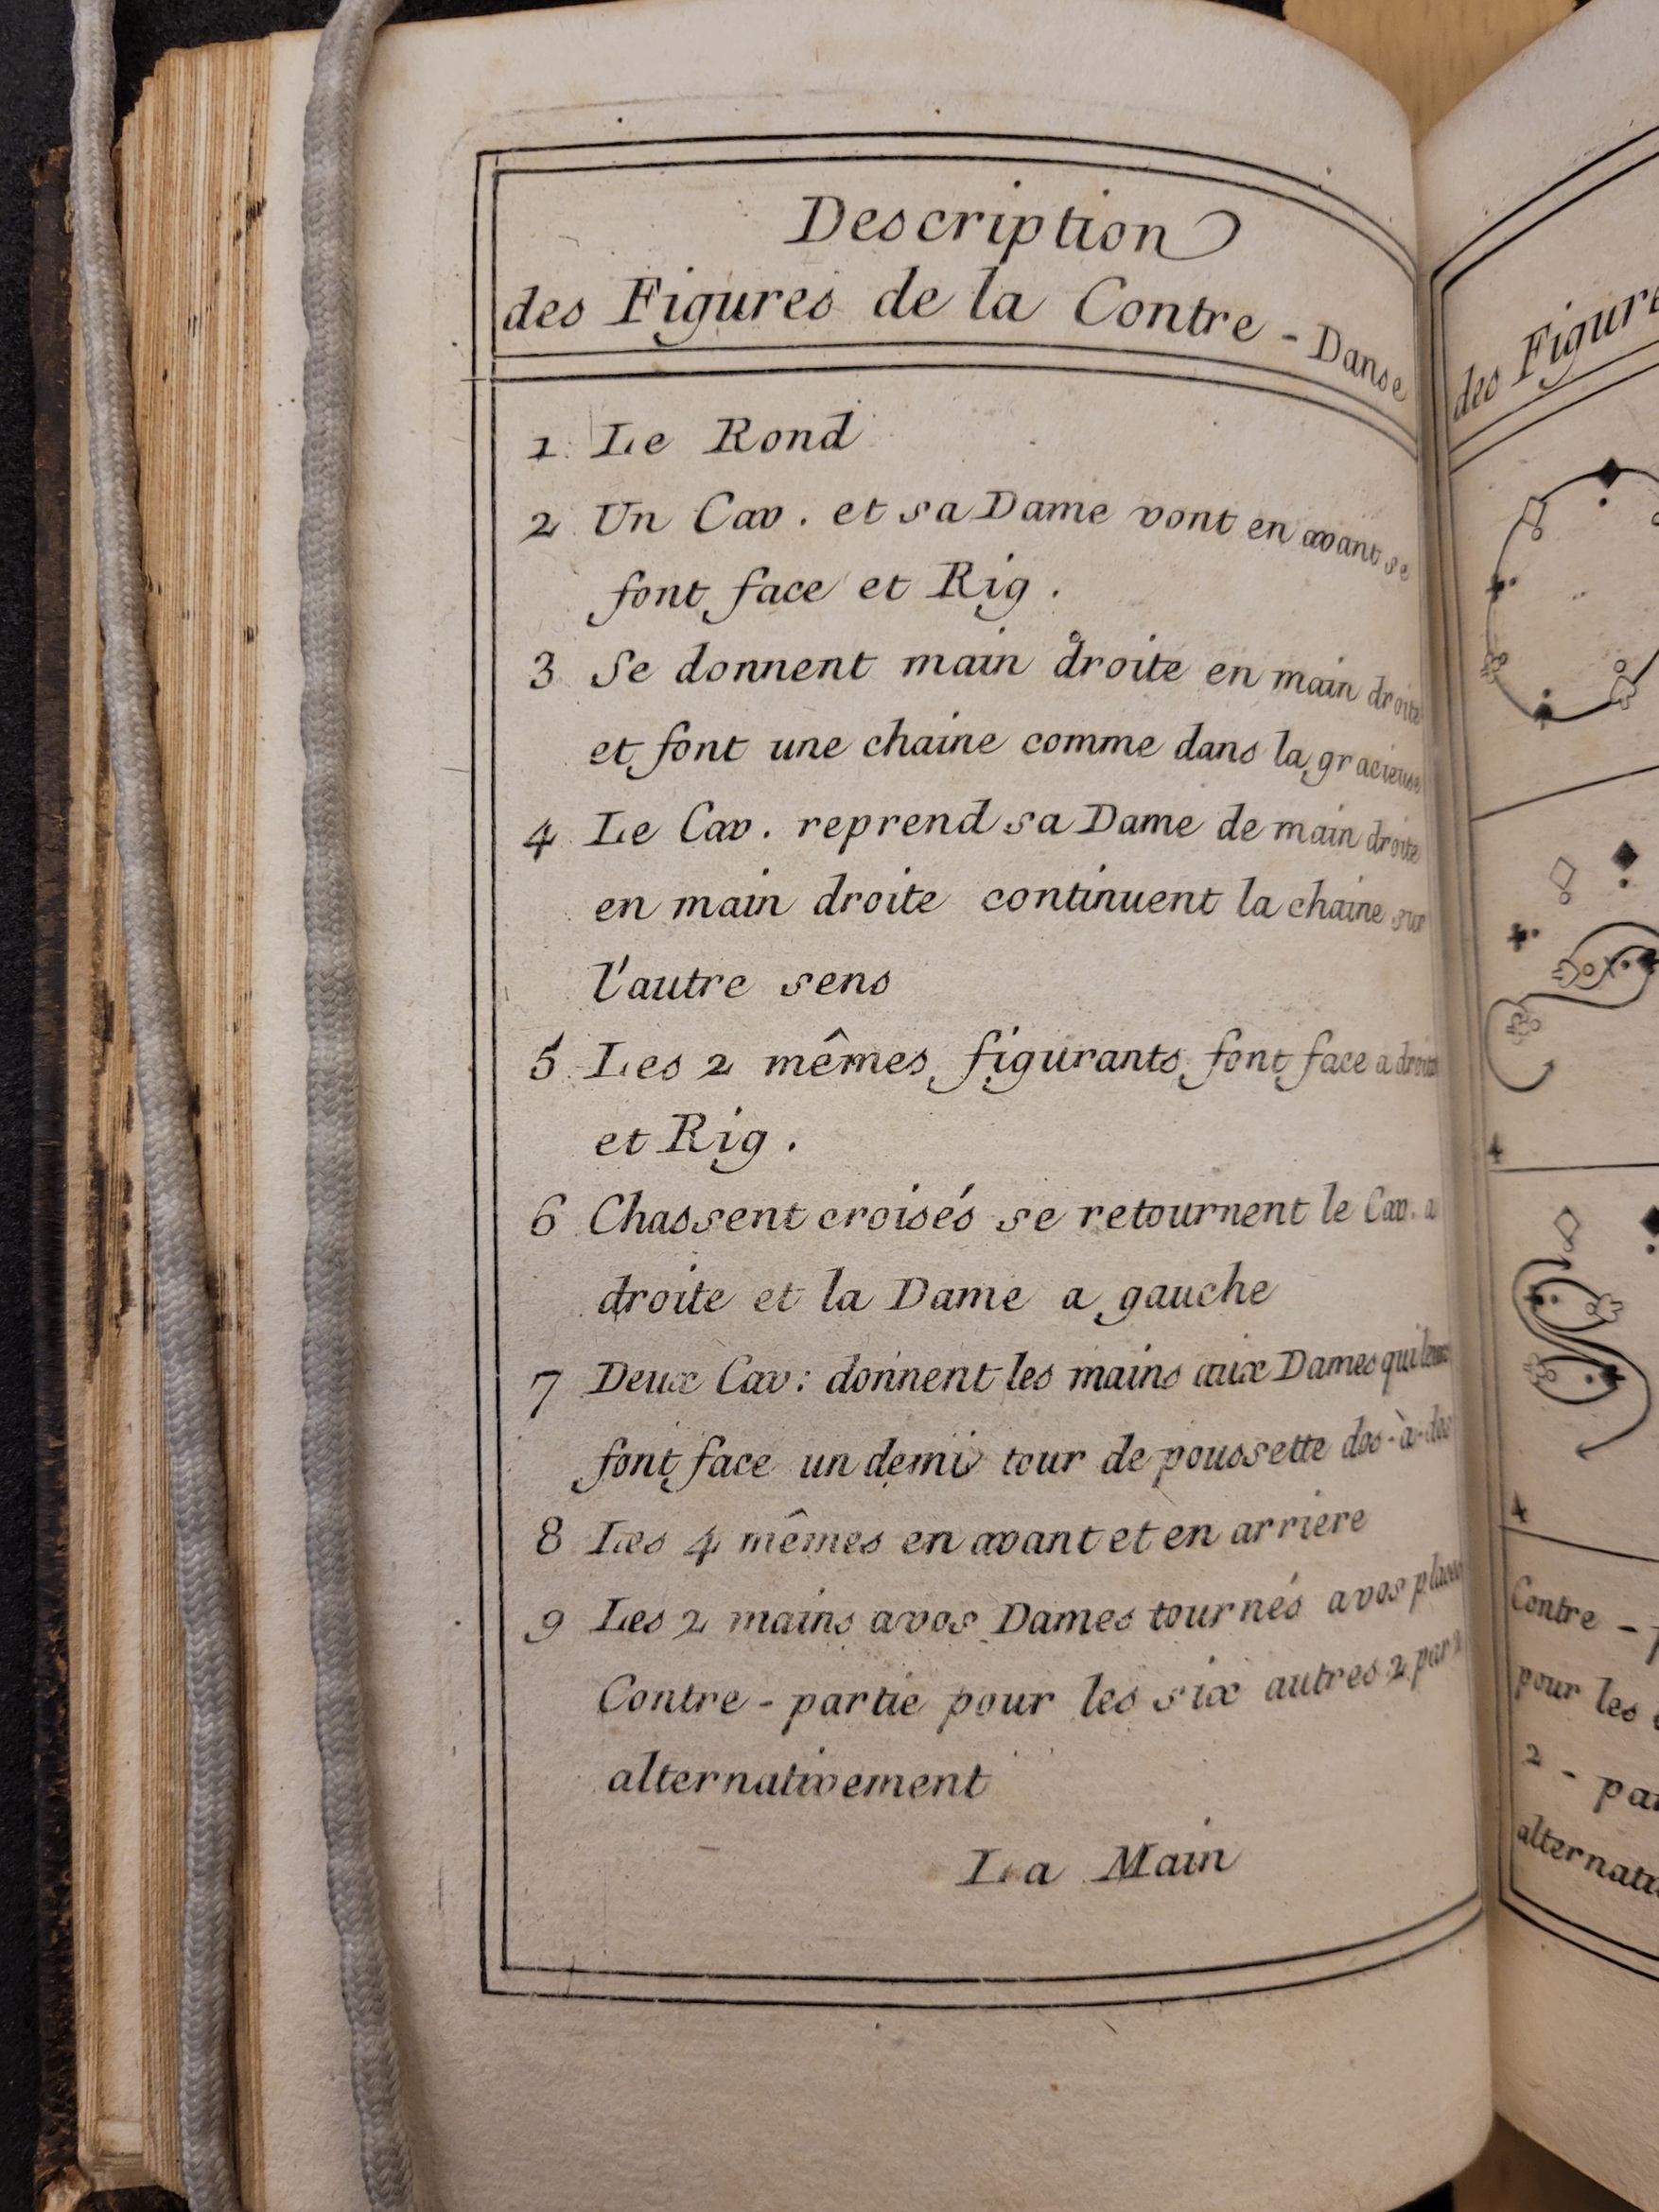 Description
des Figures de la Contre - Danse
1. Le Rond
2 Un Cav. et sa Dame vont en avant se
font face et Rig.
3 Se donnent main droite en main droite
et font une chaine comme dans la gracieuse
4 Le Cav. reprend sa Dame de main droite
en main droite continuent la chaine sur
l'autre sens
5. Les 2 mêmes figurants font face a droite
et Rig.
6 Chassent croisés se retournent le Cav. a
droite et la Dame a gauche
7 Deux Cav: donnent les mains aux Dames qui leur
font face un demi tour de poussette dos-à-dos
8 Les 4 mêmes en avant et en arriere
9 Les 2 mains a vos Dames tournés a vos places
Contre - partie pour les six autres 2 par 2
alternativement
La Main
des Figure
4
4
Contre -
pour les
2 - par
alternati